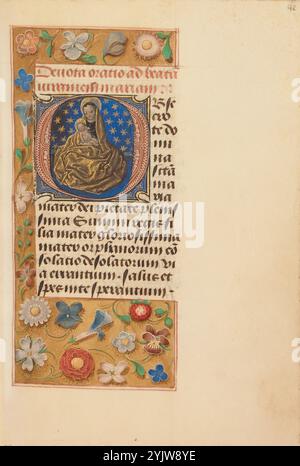 Devota oratio ad beatā
virginem mariam
O bsec
ro te do
mi
na
sctā
ma
ria
mater dei pietate pleniſ
sima Summi regis fi
lia mater gloriosissima
mater orphanorum cō
solatio desolatorum vi
a errantium salus et
spes in te sperantium
alamy
Image ID: 2YJW8YE
www.alamy.com